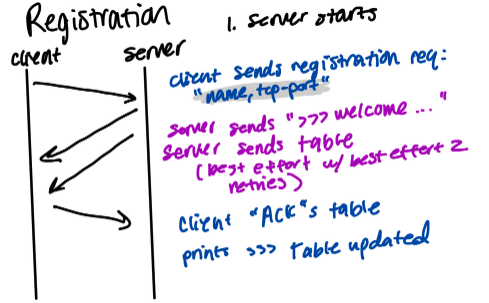 Registration
1. server starts
client server
client sends registration req:
"name, tcp-port"
server sends ">>> welcome ... "
server sends table
(best effort w/ best effort 2
retries)
client "ACK"s table
prints >>> Table updated